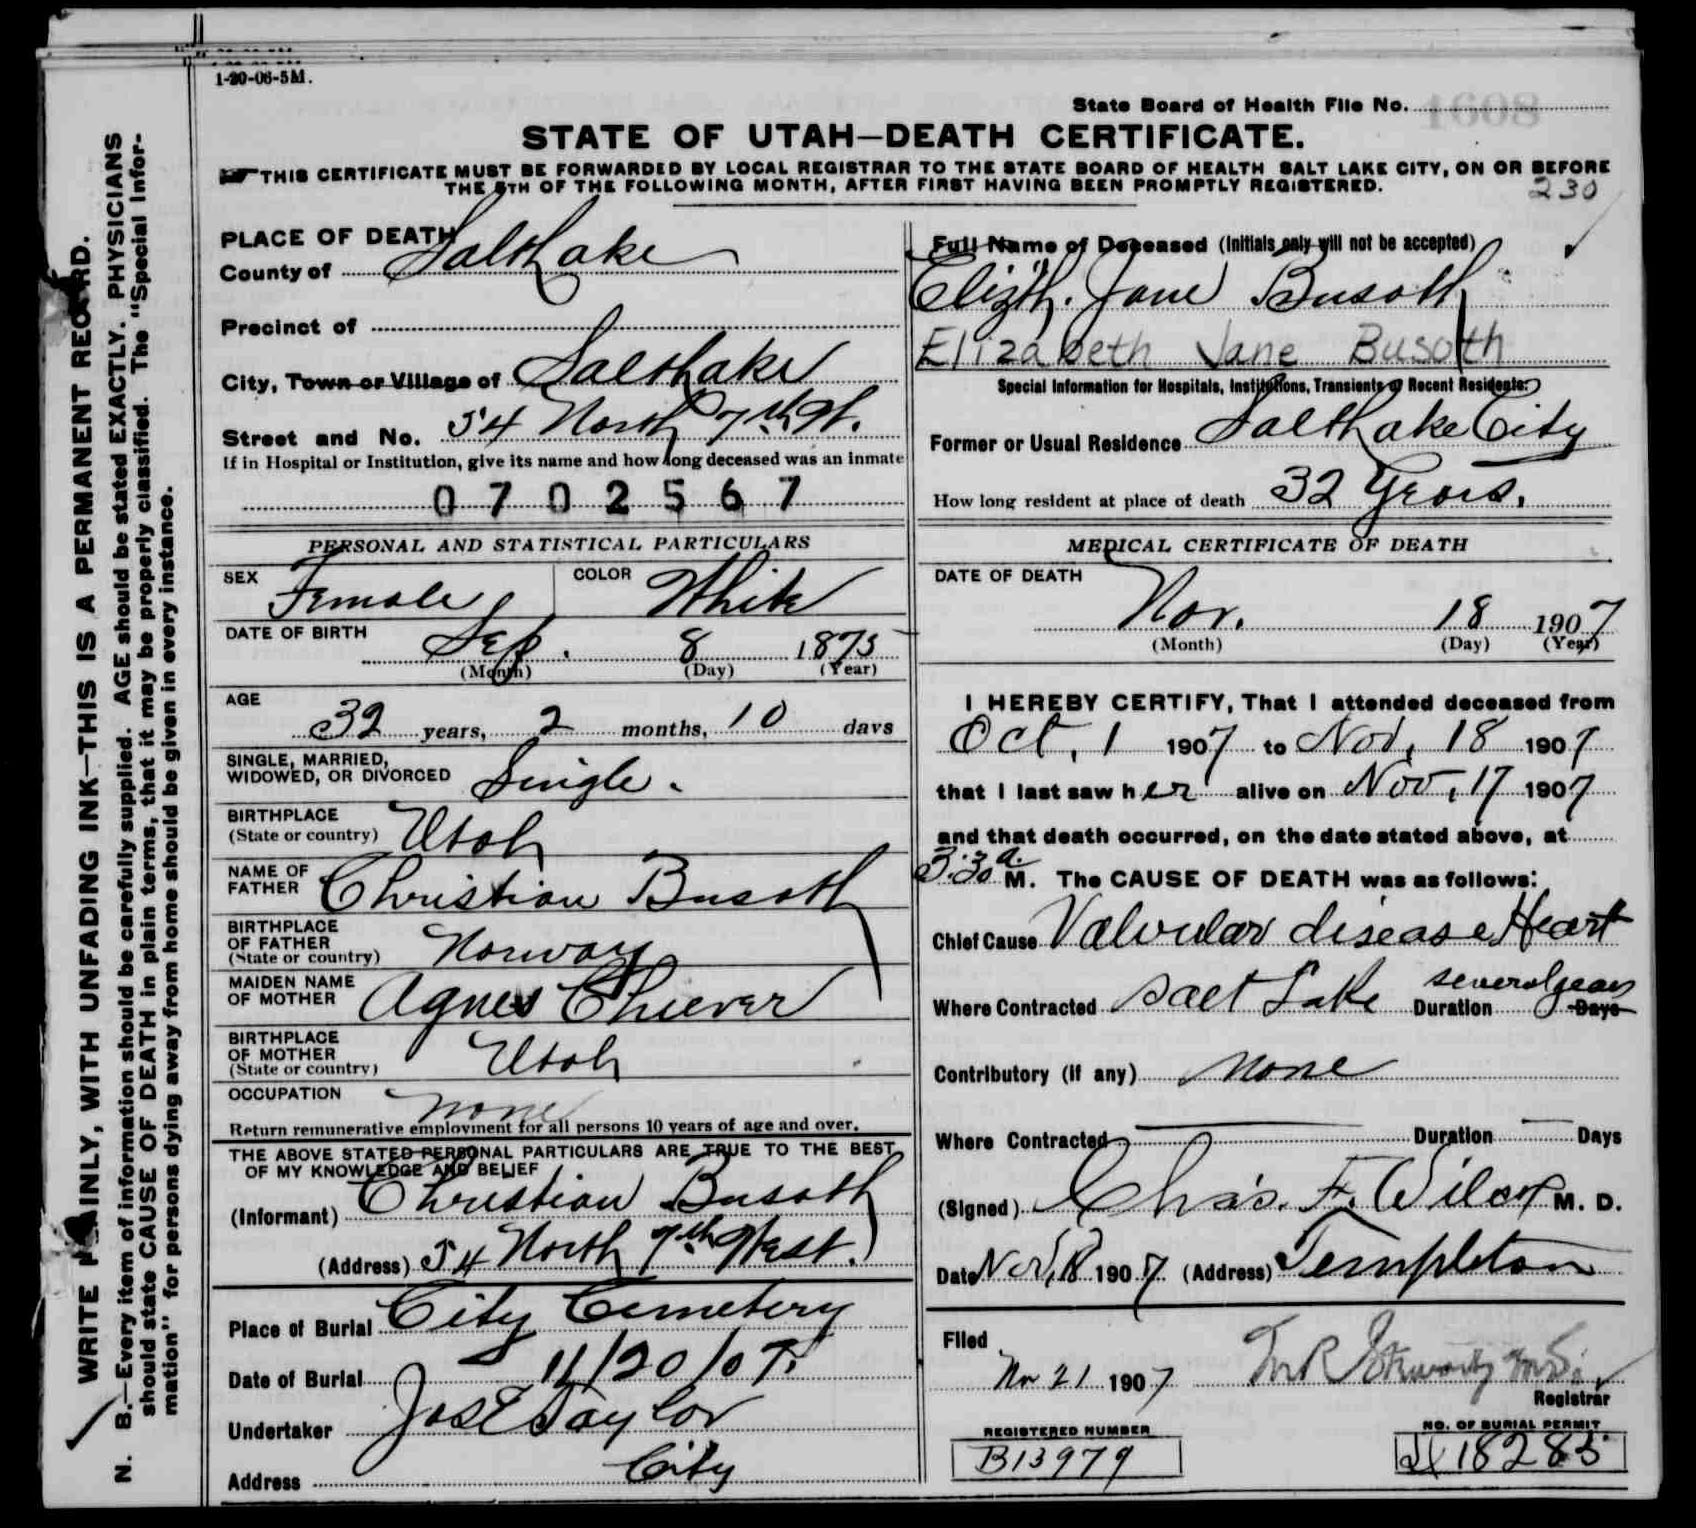 1-20-06-5M.
State Board of Health File No. 1608
STATE OF UTAH—DEATH CERTIFICATE.
THIS CERTIFICATE MUST BE FORWARDED BY LOCAL REGISTRAR TO THE STATE BOARD OF HEALTH SALT LAKE CITY, ON OR BEFORE
THE 5TH OF THE FOLLOWING MONTH, AFTER FIRST HAVING BEEN PROMPTLY REGISTERED.
230
WRITE PLAINLY, WITH UNFADING INK—THIS IS A PERMANENT RECORD.
N. B.—Every item of information should be carefully supplied. AGE should be stated EXACTLY. PHYSICIANS
should state CAUSE OF DEATH in plain terms, that it may be properly classified. The "Special Infor-
mation" for persons dying away from home should be given in every instance.
PLACE OF DEATH
County of Salt Lake
Precinct of
City, Town or Village of Salt Lake
Street and No. 54 North 7th W.
If in Hospital or Institution, give its name and how long deceased was an inmate
0702567
PERSONAL AND STATISTICAL PARTICULARS
SEX Female COLOR White
DATE OF BIRTH Sep. 8 1875
(Month) (Day) (Year)
AGE
32 years, 2 months, 10 days
SINGLE, MARRIED,
WIDOWED, OR DIVORCED Single.
BIRTHPLACE
(State or country) Utah
NAME OF
FATHER Christian Busath
BIRTHPLACE
OF FATHER
(State or country) Norway
MAIDEN NAME
OF MOTHER Agnes Cheever
BIRTHPLACE
OF MOTHER
(State or country) Utah
OCCUPATION none
Return remunerative employment for all persons 10 years of age and over.
THE ABOVE STATED PERSONAL PARTICULARS ARE TRUE TO THE BEST
OF MY KNOWLEDGE AND BELIEF
(Informant) Christian Busath
(Address) 54 North 7th West.
Place of Burial City Cemetery
Date of Burial 11/20/07.
Undertaker Jos E Taylor
Address City
Full Name of Deceased (Initials only will not be accepted)
Elizth. Jane Busath
Elizabeth Jane Busath
Special Information for Hospitals, Institutions, Transients or Recent Residents.
Former or Usual Residence Salt Lake City
How long resident at place of death 32 Years.
MEDICAL CERTIFICATE OF DEATH
DATE OF DEATH
Nov. 18 1907
(Month) (Day) (Year)
I HEREBY CERTIFY, That I attended deceased from
Oct, 1 1907 to Nov, 18 1907
that I last saw her alive on Nov, 17 1907
and that death occurred, on the date stated above, at
3:30 a. M. The CAUSE OF DEATH was as follows:
Chief Cause Valvular disease Heart
Where Contracted Salt Lake Duration several years Days
Contributory (if any) none
Where Contracted Duration Days
(Signed) Chas. F. Wilcox M. D.
Date Nov, 18 1907 (Address) Templeton
Filed
Nov 21 1907
Registrar
REGISTERED NUMBER
B13979
NO. OF BURIAL PERMIT
18283